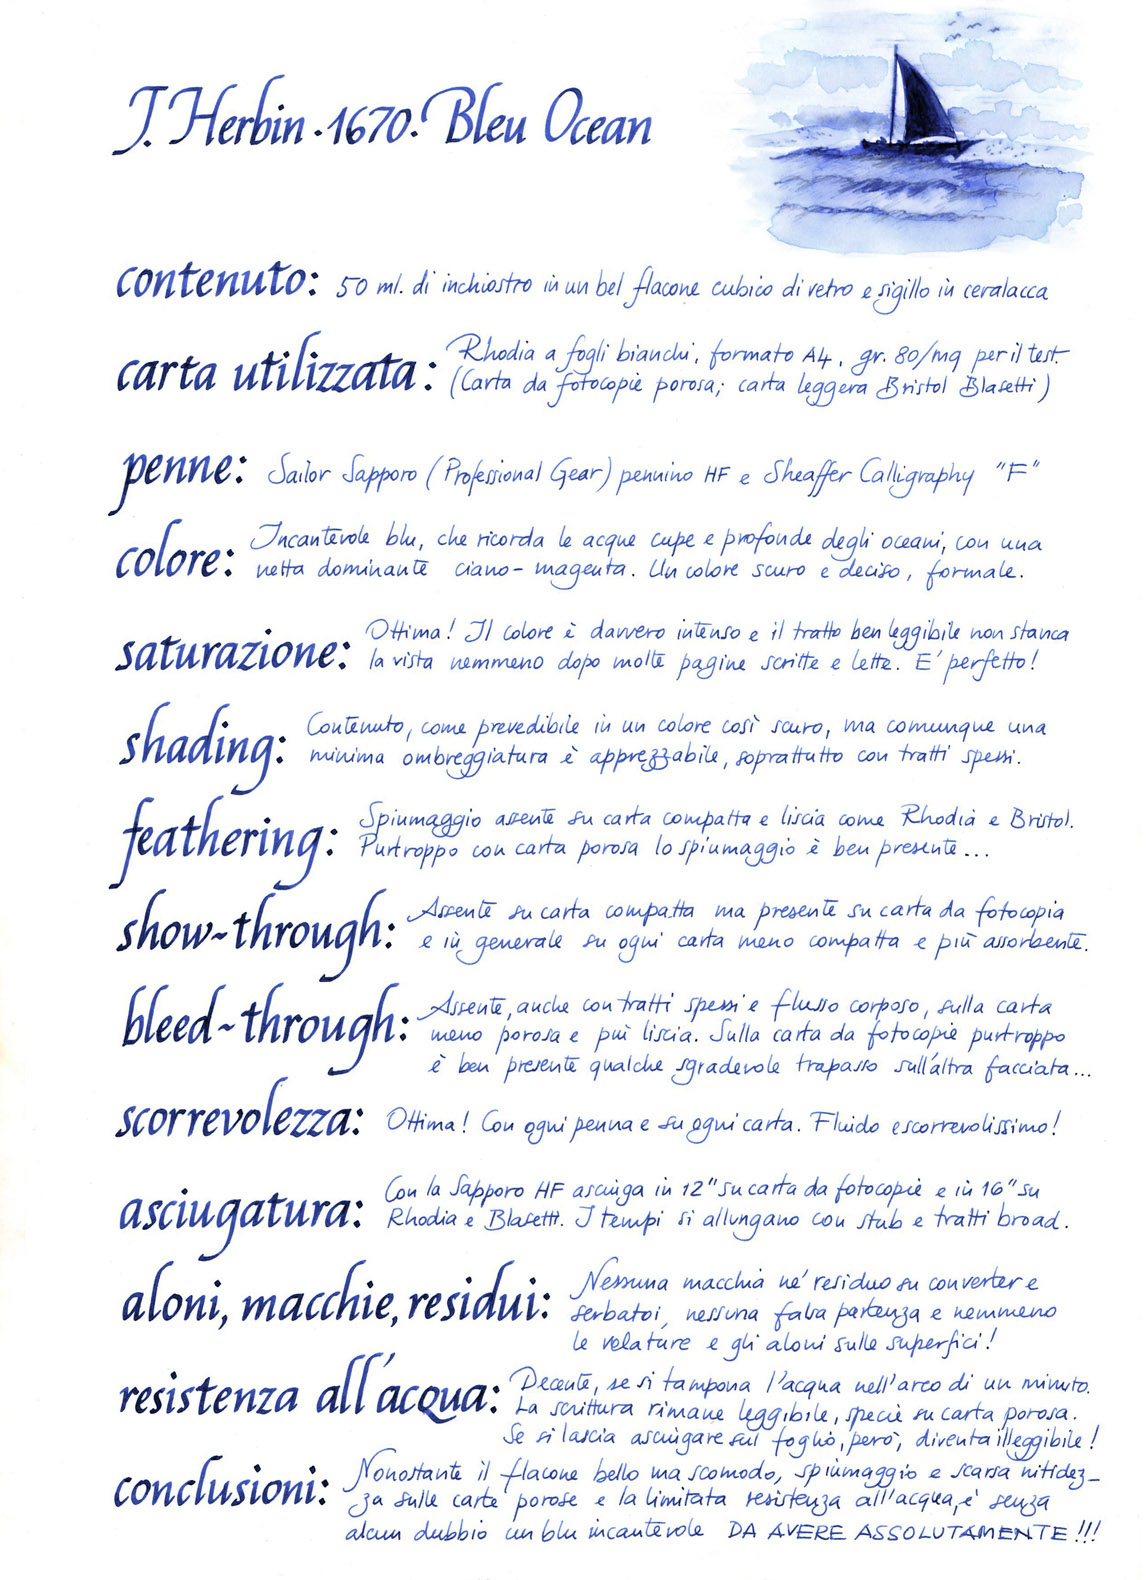 J. Herbin · 1670 · Bleu Ocean
contenuto: 50 ml. di inchiostro in un bel flacone cubico di vetro e sigillo in ceralacca
carta utilizzata: Rhodia a fogli bianchi, formato A4, gr. 80/mq per il test.
(Carta da fotocopie porosa; carta leggera Bristol Blasetti)
penne: Sailor Sapporo (Professional Gear) pennino HF e Sheaffer Calligraphy "F"
colore: Incantevole blu, che ricorda le acque cupe e profonde degli oceani, con una
netta dominante ciano-magenta. Un colore scuro e deciso, formale.
saturazione: Ottima! Il colore è davvero intenso e il tratto ben leggibile non stanca
la vista nemmeno dopo molte pagine scritte e lette. E' perfetto!
shading: Contenuto, come prevedibile in un colore così scuro, ma comunque una
minima ombreggiatura è apprezzabile, soprattutto con tratti spessi.
feathering: Spiumaggio assente su carta compatta e liscia come Rhodia e Bristol.
Purtroppo con carta porosa lo spiumaggio è ben presente...
show~through: Assente su carta compatta ma presente su carta da fotocopia
e in generale su ogni carta meno compatta e più assorbente.
bleed~through: Assente, anche con tratti spessi e flusso corposo, sulla carta
meno porosa e più liscia. Sulla carta da fotocopie purtroppo
è ben presente qualche sgradevole trapasso sull'altra facciata...
scorrevolezza: Ottima! Con ogni penna e su ogni carta. Fluido e scorrevolissimo!
asciugatura: Con la Sapporo HF asciuga in 12" su carta da fotocopie e in 16" su
Rhodia e Blasetti. I tempi si allungano con stub e tratti broad.
aloni, macchie, residui: Nessuna macchia né residuo su converter e
serbatoi, nessuna falsa partenza e nemmeno
le velature e gli aloni sulle superfici!
resistenza all'acqua: Decente, se si tampona l'acqua nell'arco di un minuto.
La scrittura rimane leggibile, specie su carta porosa.
Se si lascia asciugare sul foglio, però, diventa illeggibile!
conclusioni: Nonostante il flacone bello ma scomodo, spiumaggio e scarsa nitidez-
za sulle carte porose e la limitata resistenza all'acqua, è senza
alcun dubbio un blu incantevole DA AVERE ASSOLUTAMENTE!!!